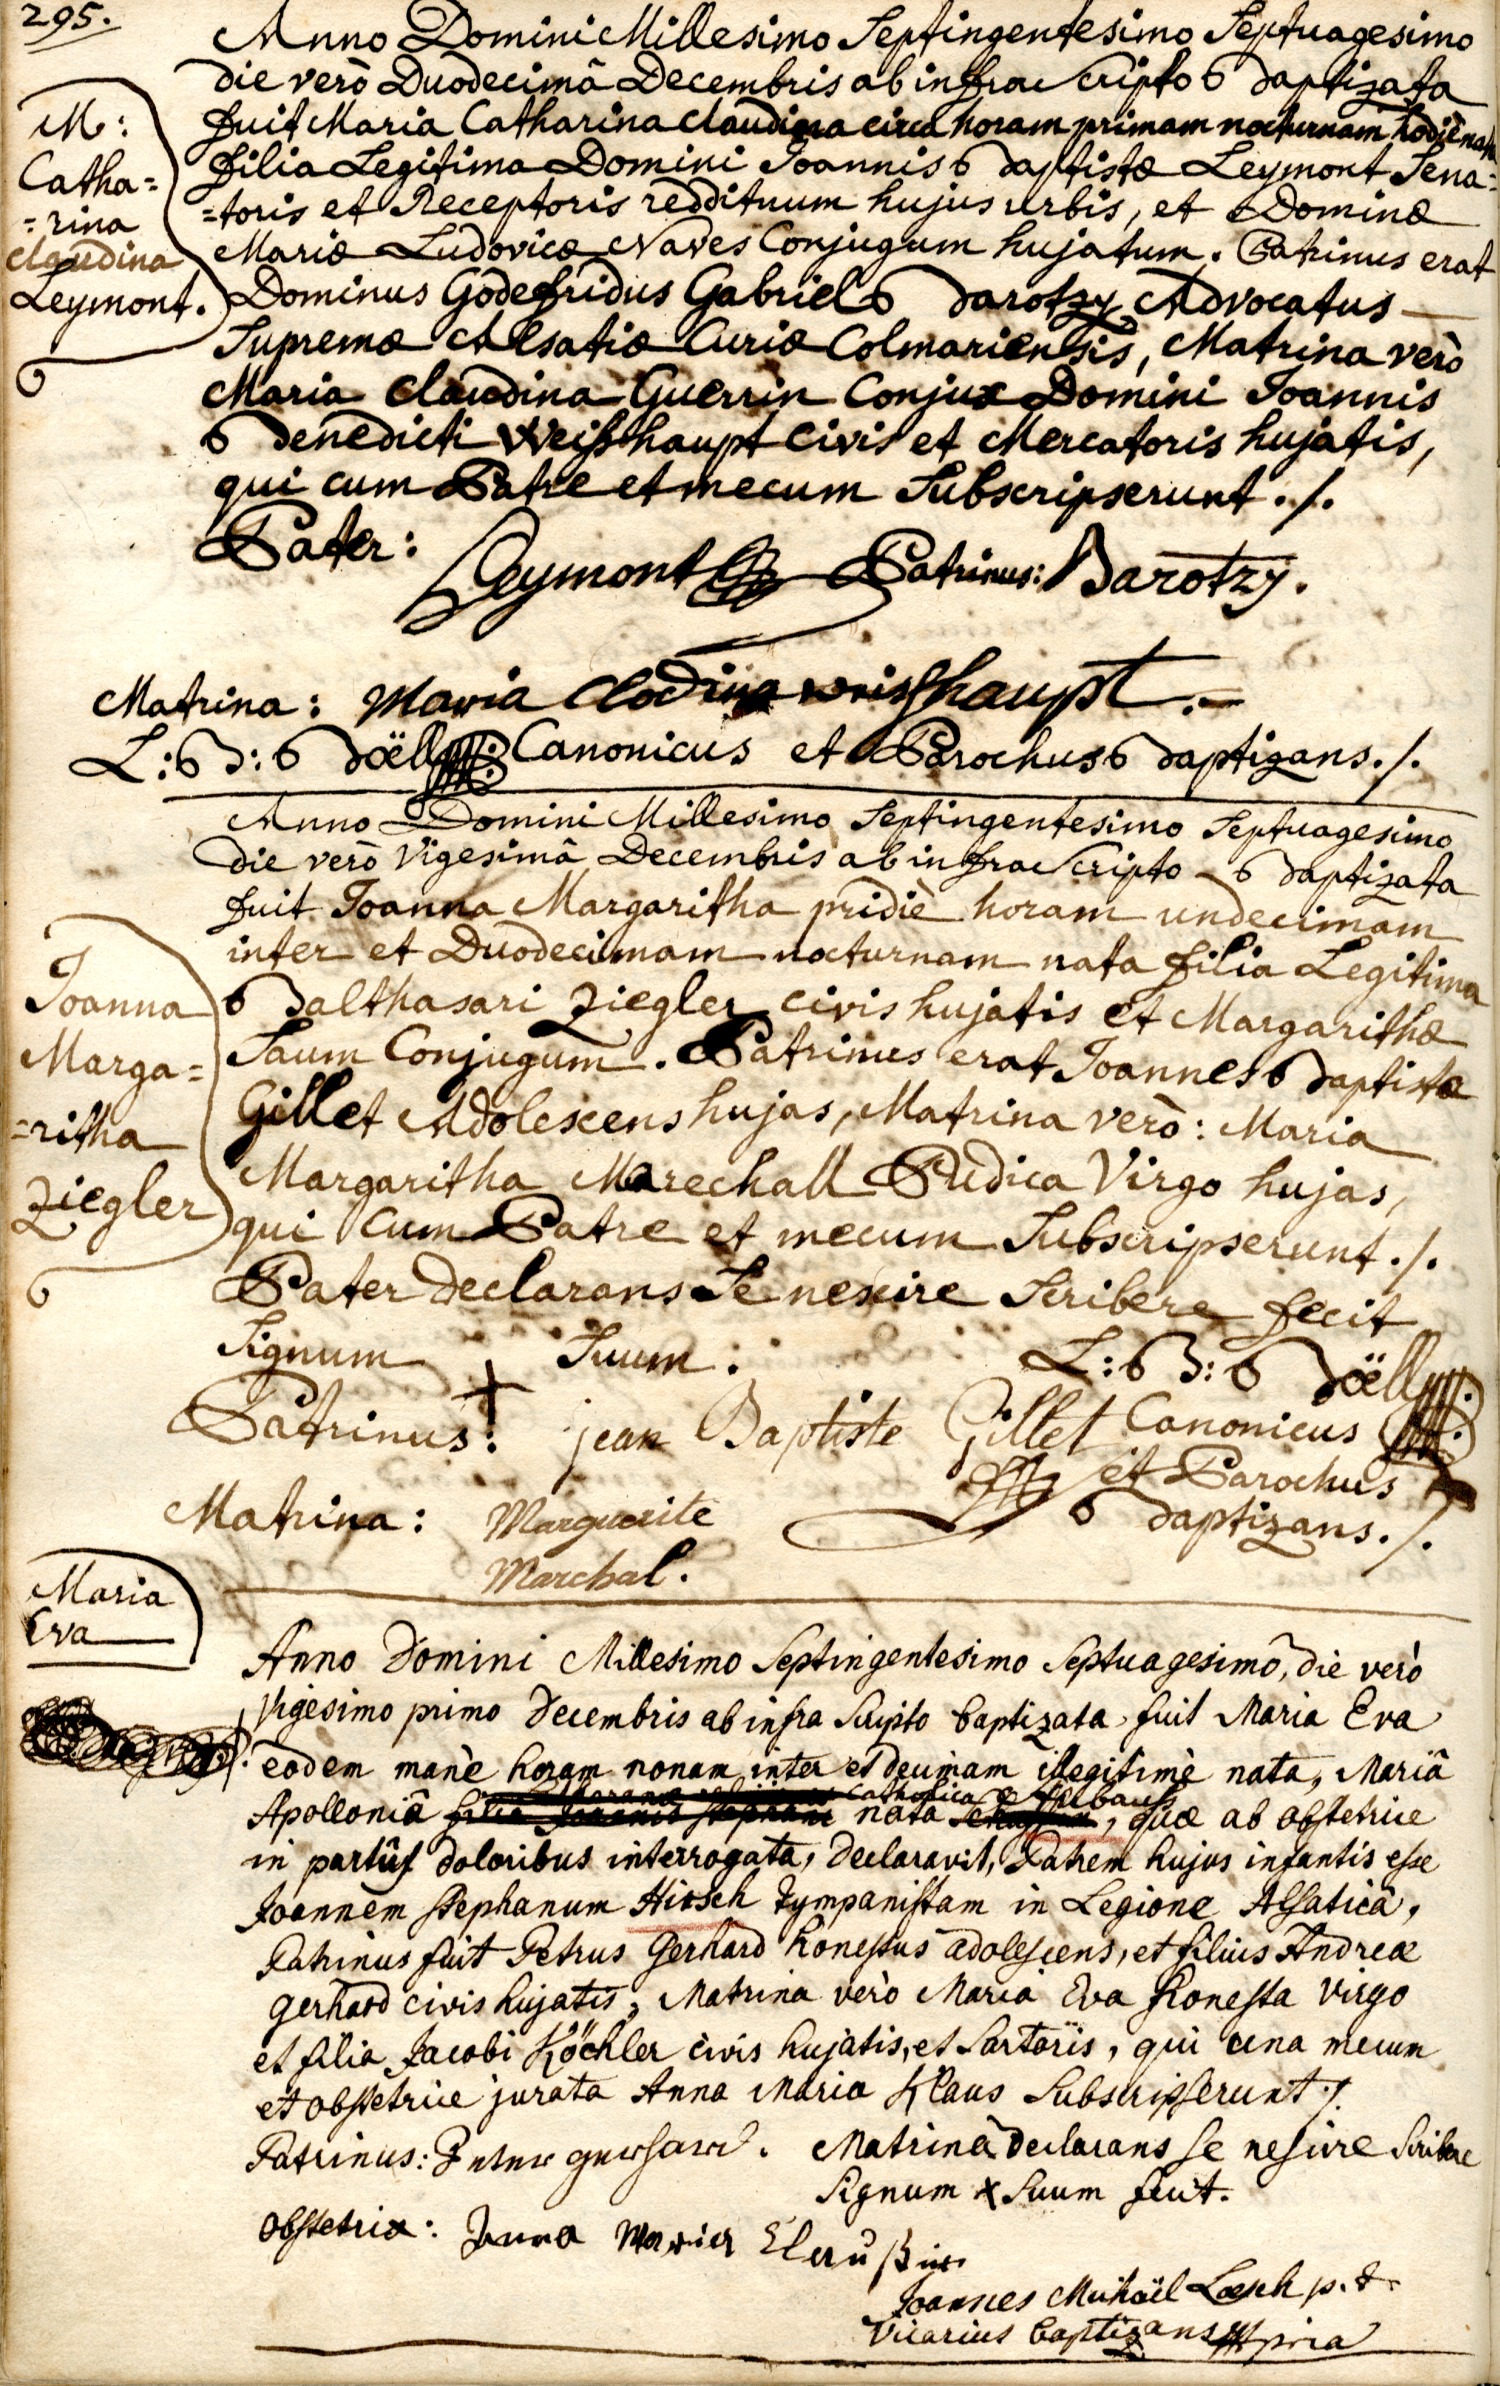 295.
Anno Domini Millesimo Septingentesimo Septuagesimo
die verò Duodecimâ Decembris ab infra Scripto Baptizata
fuit Maria Catharina Claudina circa horam primam nocturnam hodie nata
filia Legitima Domini Joannis Baptistæ Leymont Sena=
=toris et Receptoris reddituum hujus urbis, et Dominæ
Mariæ Ludovicæ Naves Conjugum hujatum. Patrinus erat
Dominus Godefridus Gabriel Barotzy Advocatus
Supremæ Alsatiæ Curiæ Colmariensis, Matrina verò
Maria Claudina Guerrin Conjux Domini Joannis
Benedicti Weisshaupt Civis et Mercatoris hujatis,
qui cum Patre et mecum Subscripserunt ./.
M:
Catha=
=rina
Claudina
Leymont.
Pater: Leymont Patrinus: Barotzy.
Matrina: Maria Clodina weisshaupt .-
L:B: Boëll Canonicus et Parochus Baptizans ./.
Anno Domini Millesimo Septingentesimo Septuagesimo
die verò Vigesimâ Decembris ab infra Scripto Baptizata
fuit Joanna Margaritha pridiè horam undecimam
inter et Duodecimam nocturnam nata filia Legitima
Balthasari Ziegler civis hujatis et Margarithæ
Saum Conjugum. Patrinus erat Joannes Baptista
Gillet Adolescens hujas, Matrina verò: Maria
Margaritha Marechall Pudica Virgo hujas,
qui cum Patre et mecum Subscripserunt ./.
Joanna
Marga=
=ritha
Ziegler
Pater declarans Se nescire Scribere fecit
Signum + Suum:
L:B: Boëll
Patrinus: jean Baptiste Gillet Canonicus
et Parochus
Baptizans ./.
Matrina: Marguerite
Marchal.
Maria
Eva
Anno Domini Millesimo Septingentesimo Septuagesimo, die verò
Vigesimo primo Decembris ab infra Scripto baptizata fuit Maria Eva
eodem manè horam nonam inter et decimam illegitimè nata, Mariâ
Catholica
Apolloniâ filia Joannis Stephani nata, quæ ab obstetrice
in partûs doloribus interrogata, declaravit, Patrem hujus infantis esse
Joannem Stephanum Hirsch Tympanistam in Legione Alsaticâ,
Patrinus fuit Petrus Gerhard honestus adolescens, et filius Andreæ
Gerhard civis hujatis, Matrina verò Maria Eva honesta Virgo
et filia Jacobi Köchler civis hujatis, et Sartoris, qui una mecum
et obstetrice jurata Anna Maria Klaus Subscripserunt ./.
Patrinus: Peter gerhard. Matrina declarans se nescire Scribere
Signum x Suum fecit.
Obstetrix: Anna Maria
Joannes Michaël Loesch p.t.
Vicarius baptizans mpria